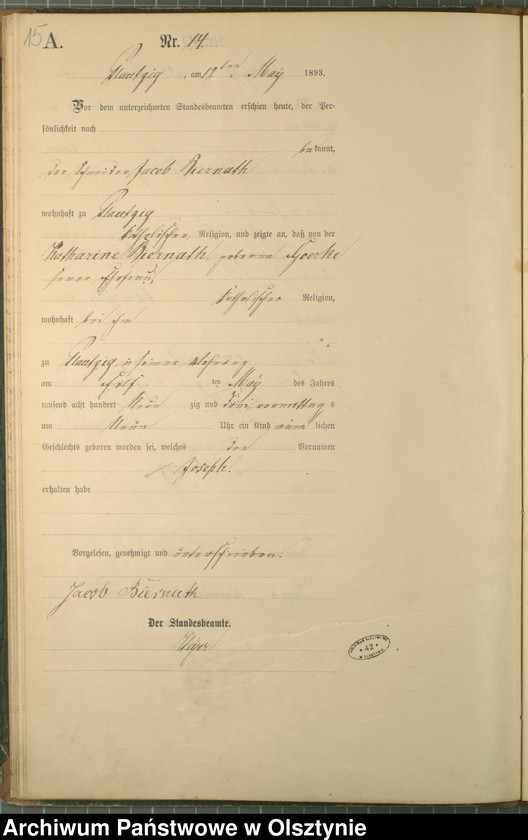 15 A. Nr. 14
Plautzig, am 12ten May 1893.
Vor dem unterzeichneten Standesbeamten erschien heute, der Per-
sönlichkeit nach
bekannt,
der Schneider Jacob Biernath
wohnhaft zu Plautzig
katholischer Religion, und zeigte an, daß von der
Katharine Biernath, geboren
seiner Ehefrau,
katholischer Religion,
wohnhaft bei ihm
zu Plautzig in seiner Wohnung
am Elf ten May des Jahres
tausend acht hundert Neun zig und Drei vormittags
um Neun Uhr ein Kind männlichen
Geschlechts geboren worden sei, welches den Vornamen
Joseph.
erhalten habe
Vorgelesen, genehmigt und unterschrieben.
Jacob Biernath
Der Standesbeamte.
42
Archiwum Państwowe w Olsztynie